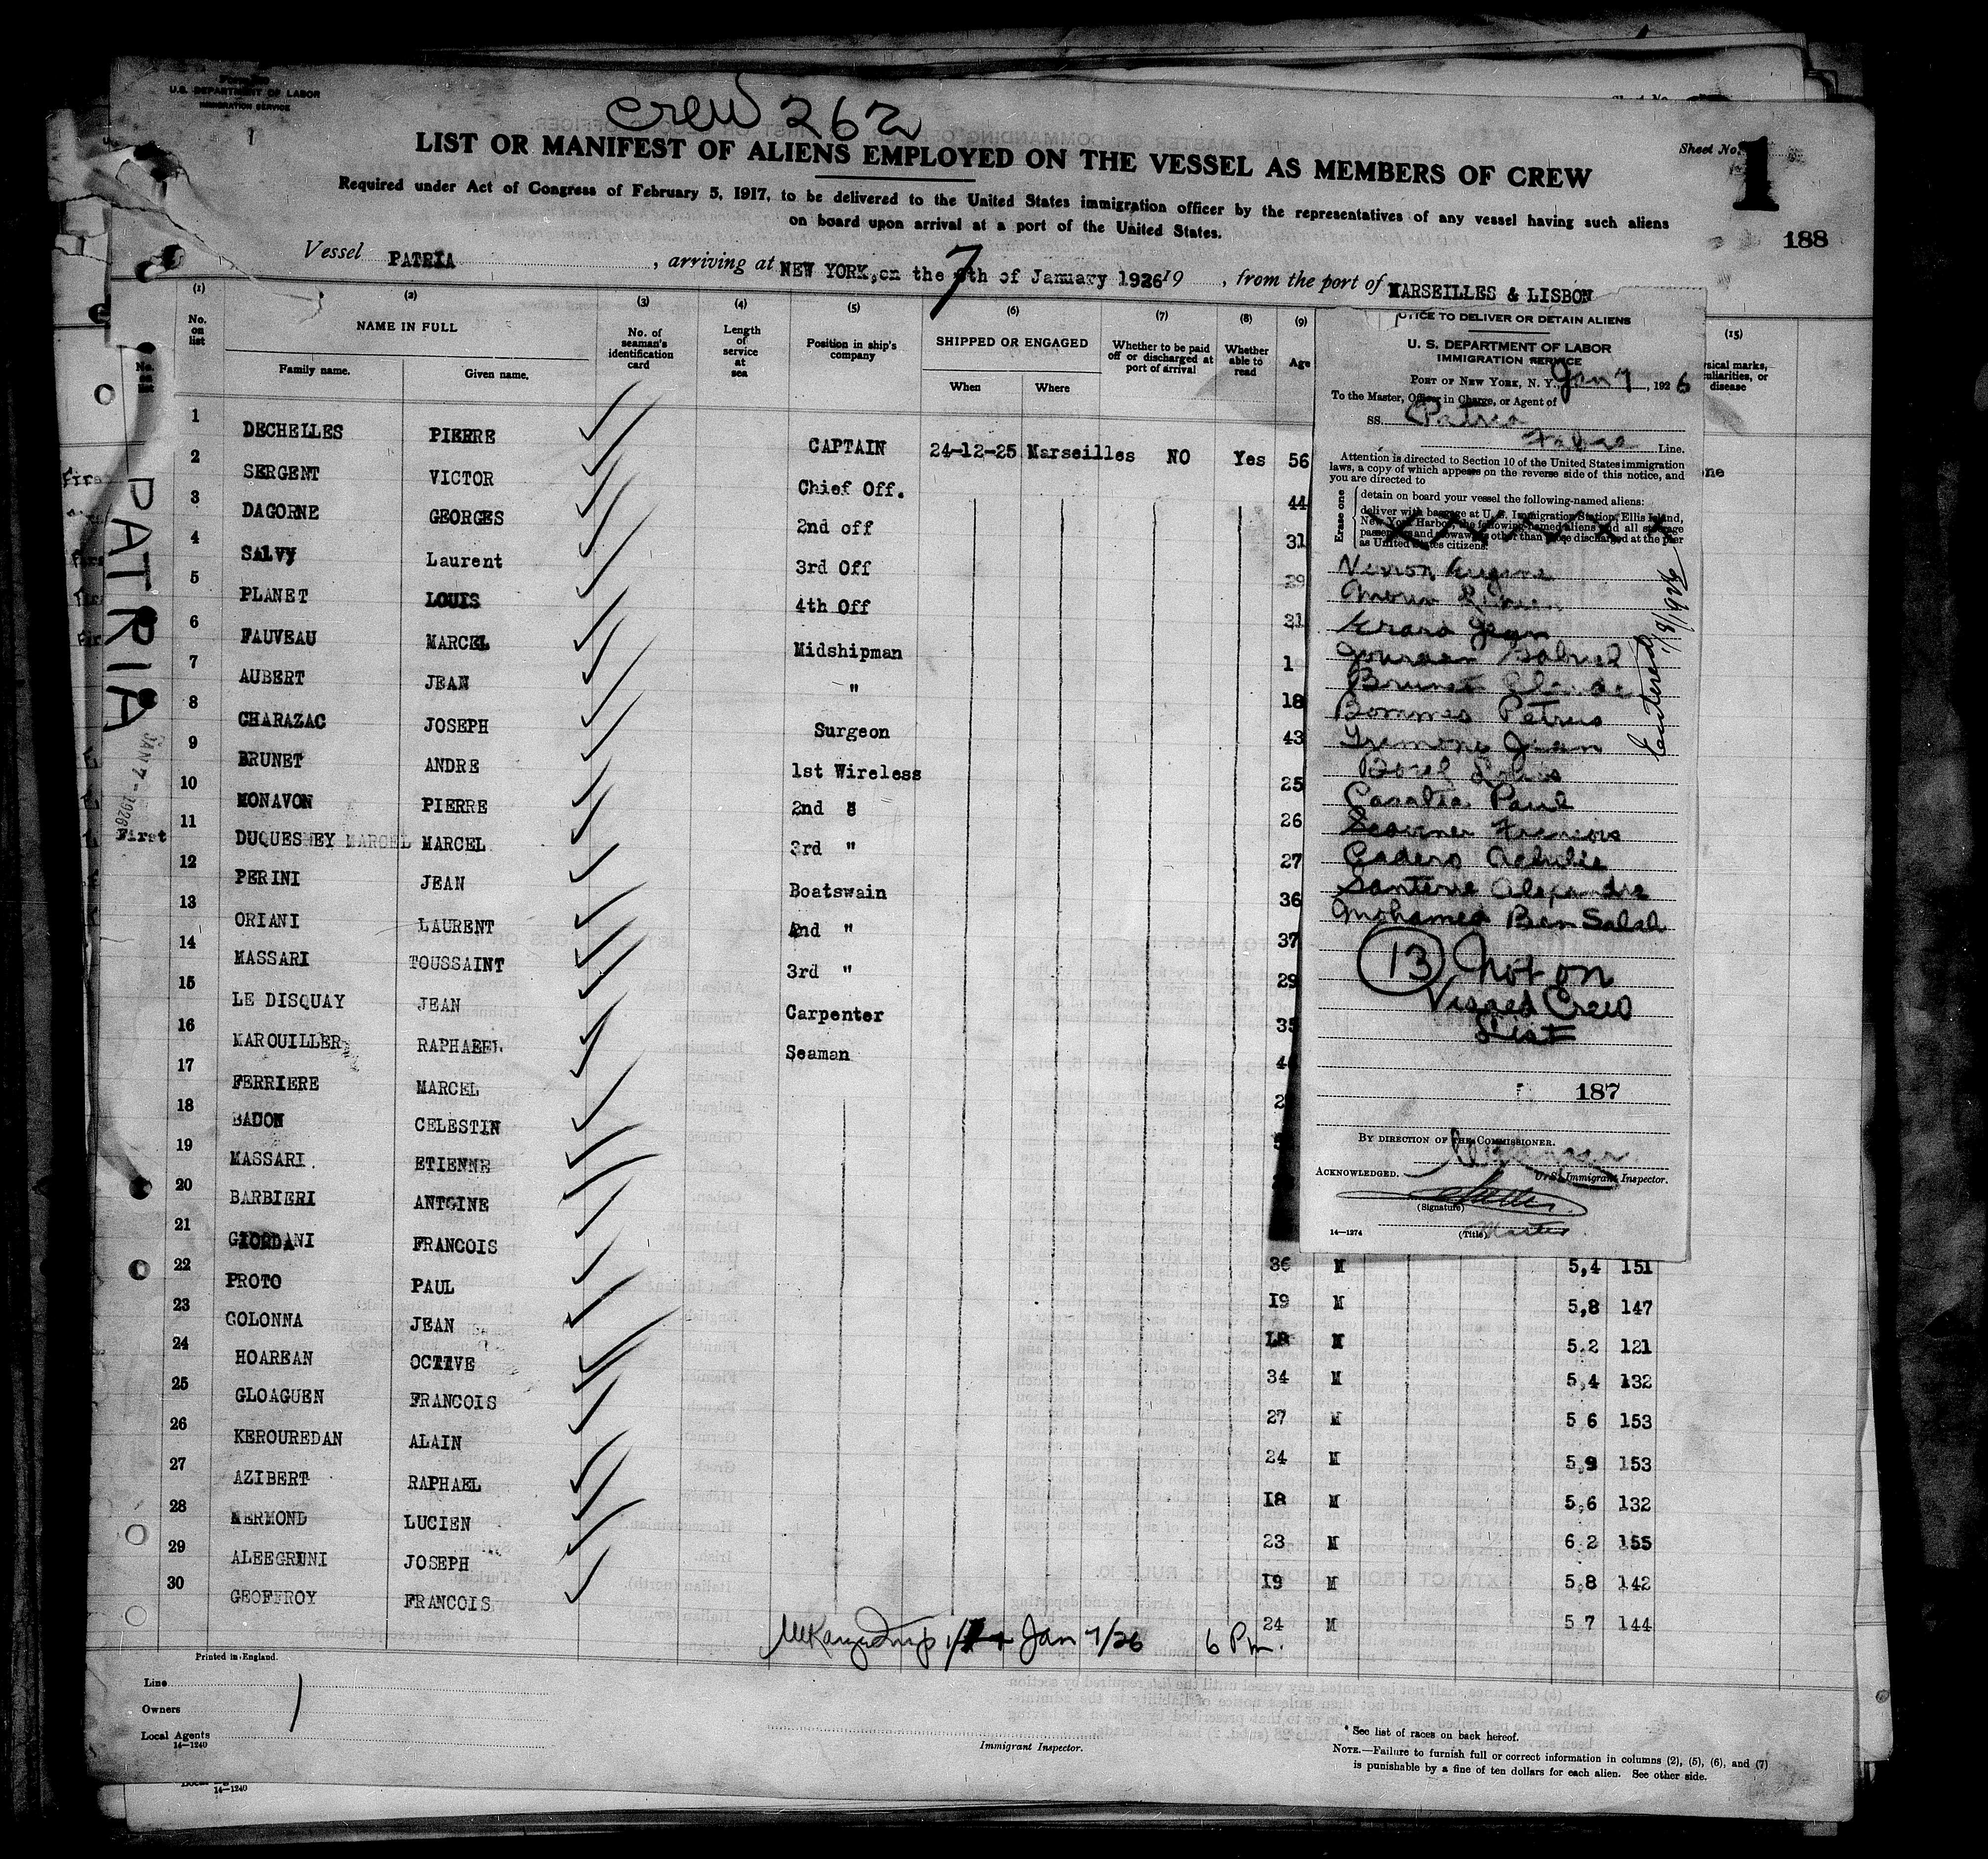 U.S. DEPARTMENT OF LABOR
IMMIGRATION SERVICE
Crew 262
LIST OR MANIFEST OF ALIENS EMPLOYED ON THE VESSEL AS MEMBERS OF CREW
Sheet No. 1
Required under Act of Congress of February 5, 1917, to be delivered to the United States immigration officer by the representatives of any vessel having such aliens
on board upon arrival at a port of the United States.
188
Vessel PATRIA, arriving at NEW YORK, on the 7th of January 1926 19, from the port of MARSEILLES & LISBON
(1) (2) (3) (4) (5) (6) (7) (8) (9) (15)
No. on list NAME IN FULL No. of seaman's identification card Length of service at sea Position in ship's company SHIPPED OR ENGAGED Whether to be paid off or discharged at port of arrival Whether able to read Age
Family name. Given name. When Where
1 DECHELLES PIERRE CAPTAIN 24-12-25 Marseilles NO Yes 56
2 SERGENT VICTOR Chief Off. 44
3 DAGORNE GEORGES 2nd off 31
4 SALVY Laurent 3rd Off 29
5 PLANET LOUIS 4th Off 31
6 FAUVEAU MARCEL Midshipman 1
7 AUBERT JEAN " 18
8 CHARAZAC JOSEPH Surgeon 43
9 BRUNET ANDRE 1st Wireless 25
10 MONAVON PIERRE 2nd " 26
11 First DUQUESNEY MARCEL MARCEL 3rd " 27
12 PERINI JEAN Boatswain 36
13 ORIANI LAURENT 2nd " 37
14 MASSARI TOUSSAINT 3rd " 29
15 LE DISQUAY JEAN Carpenter 35
16 MAROUILLER RAPHAEEL Seaman 4
17 FERRIERE MARCEL 2
18 BADON CELESTIN
19 MASSARI ETIENNE
20 BARBIERI ANTOINE
21 GIORDANI FRANCOIS 36 M 5,4 151
22 PROTO PAUL 19 M 5,8 147
23 COLONNA JEAN 18 M 5.2 121
24 HOAREAN OCTAVE 34 M 5,4 132
25 GLOAGUEN FRANCOIS 27 M 5 6 153
26 KEROUREDAN ALAIN 24 M 5,9 153
27 AZIBERT RAPHAEL 18 M 5,6 132
28 MERMOND LUCIEN 23 M 6 2 155
29 ALEEGRINI JOSEPH 19 M 5,8 142
30 GEOFFROY FRANCOIS 24 M 5 7 144
Jan 7/26 6 Pm.
PATRIA
JAN 7 - 1926
NOTICE TO DELIVER OR DETAIN ALIENS
U. S. DEPARTMENT OF LABOR
IMMIGRATION SERVICE
PORT OF NEW YORK, N. Y., Jan 7, 1926
To the Master, Officer in Charge, or Agent of
SS. Patria
Fabre Line.
Attention is directed to Section 10 of the United States immigration
laws, a copy of which appears on the reverse side of this notice, and
you are directed to
Erase one
detain on board your vessel the following-named aliens:
deliver with baggage at U. S. Immigration Station, Ellis Island,
New York Harbor, the following-named aliens and all steerage
passengers and stowaways other than those discharged at the pier
as United States citizens:
Eugene
Jean
Gabriel
Brunet Claude
Bommes Petrus
Tremone Jean
Louis
Casalta Paul
Francois
Cadero Achille
Santerre Alexandre
Mohamed Ben Salah
(13) Not on
Visaed Crew
List
Entered 1/8/1926
187
BY DIRECTION OF THE COMMISSIONER.
U. S. Immigrant Inspector.
ACKNOWLEDGED.
(Signature)
Master
(Title)
14—1274
Printed in England.
Line
Owners
Local Agents
14—1240
Immigrant Inspector.
* See list of races on back hereof.
NOTE.—Failure to furnish full or correct information in columns (2), (5), (6), and (7)
is punishable by a fine of ten dollars for each alien. See other side.
14—1240